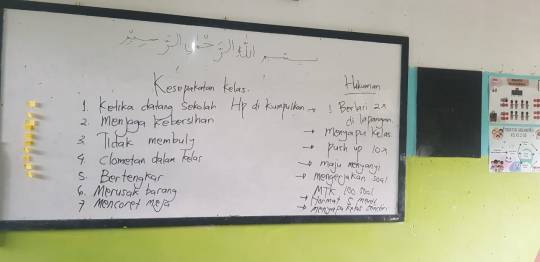 بسم الله الرحمن الرحيم
Kesepakatan kelas. Hukuman
1. Ketika datang Sekolah Hp di kumpulkan → 1 Berlari 2x
di lapangan
2. Menjaga Kebersihan → Menyapu kelas
3. Tidak membuly → push up 10x
4. clometan dalam kelas → maju menyanyi
5. Bertengkar → mengerjakan soal
MTK 100 soal
6. Merusak barang → Hormat 5 menit
7 Mencoret meja → menyapu kelas sendiri